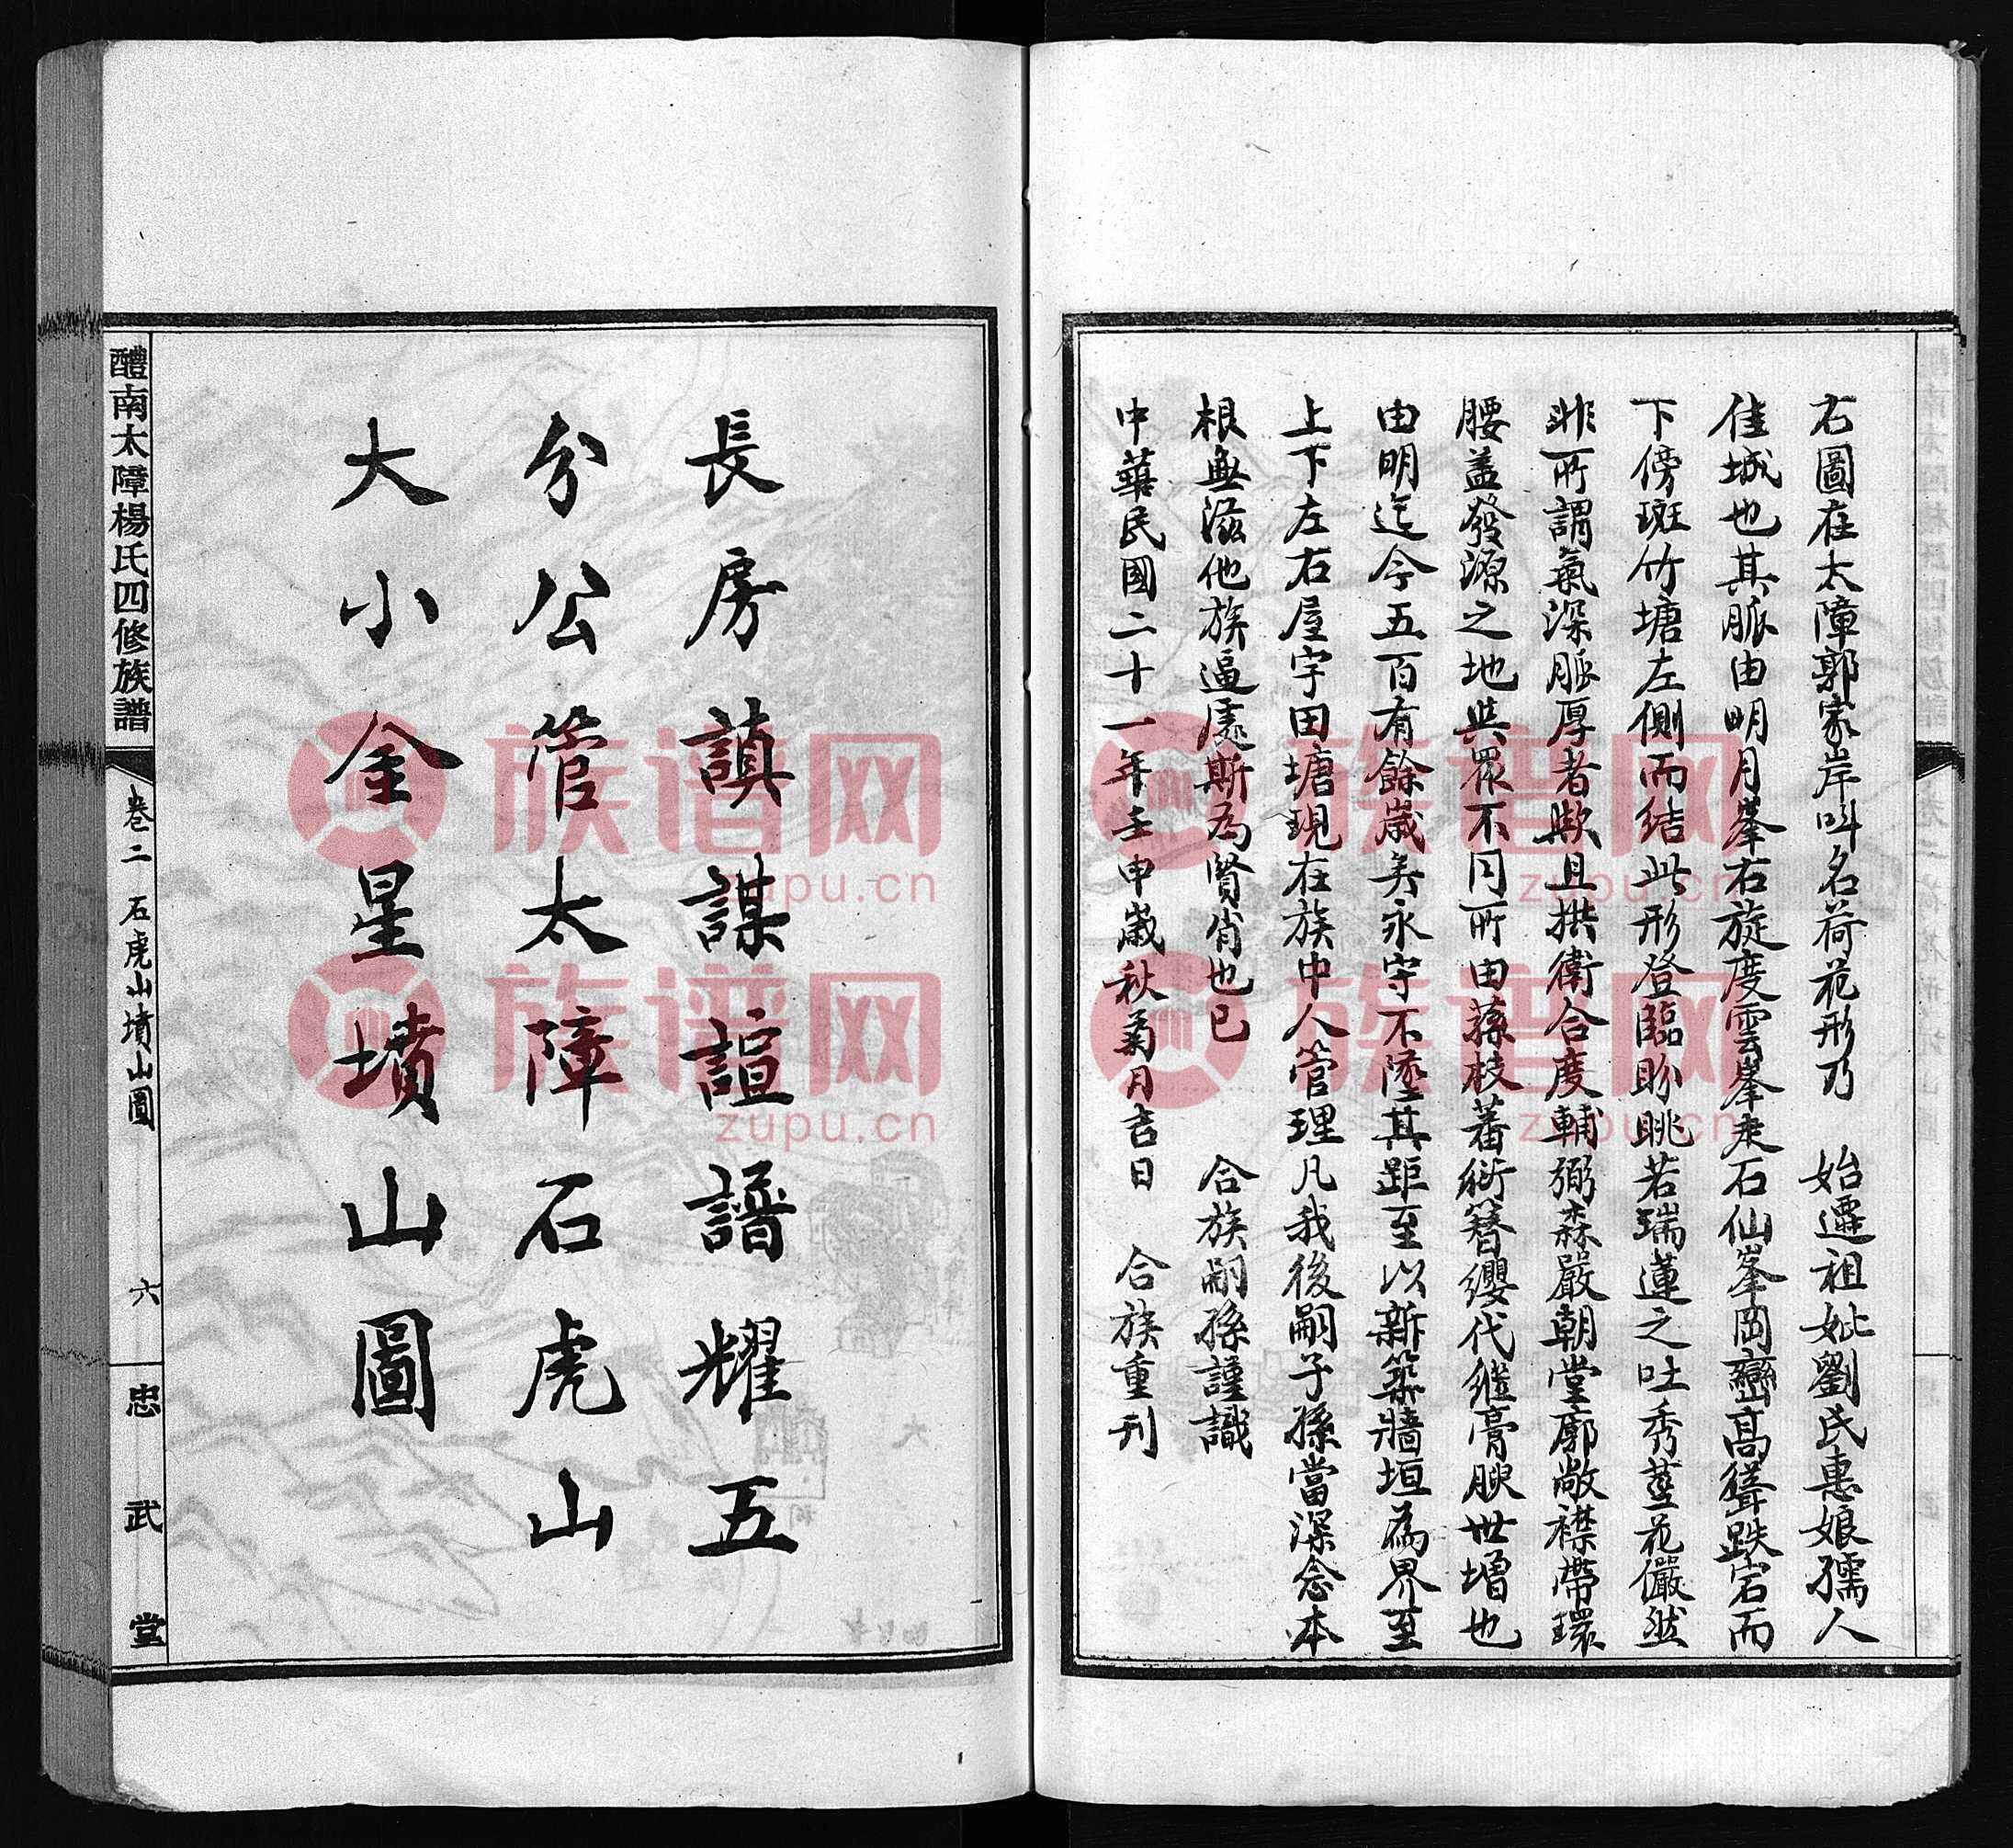 右圖在太障郭家岸叫名荷花形乃 始遷祖妣劉氏惠娘孺人
佳城也其脈由明月峯右旋度雲峯走石仙峯岡巒高聳跌宕而
下傍斑竹塘左側而結此形登臨盼眺若瑞蓮之吐秀莖花儼然
非所謂氣深脈厚者歟且拱衛合度輔弼森嚴朝堂廓敞襟帶環
腰盖發源之地與眾不同所由蘇枝蕃衍簪纓代繼膏腴世增也
由明迄今五百有餘歲矣永守不墜其距至以新築牆垣為界至
上下左右屋宇田塘現在族中人管理凡我後嗣子孫當深念本
根無滋他族逼處斯為賢肖也已 合族嗣孫謹識
中華民國二十一年壬申歲秋菊月吉日 合族重刊
長房謓謀諠譜耀五
分公管太障石虎山
大小金星墳山圖
醴南太障楊氏四修族譜
卷二 石虎山墳山圖 六
忠武堂
族谱网
zupu.cn
族谱网
zupu.cn
族谱网
zupu.cn
族谱网
zupu.cn